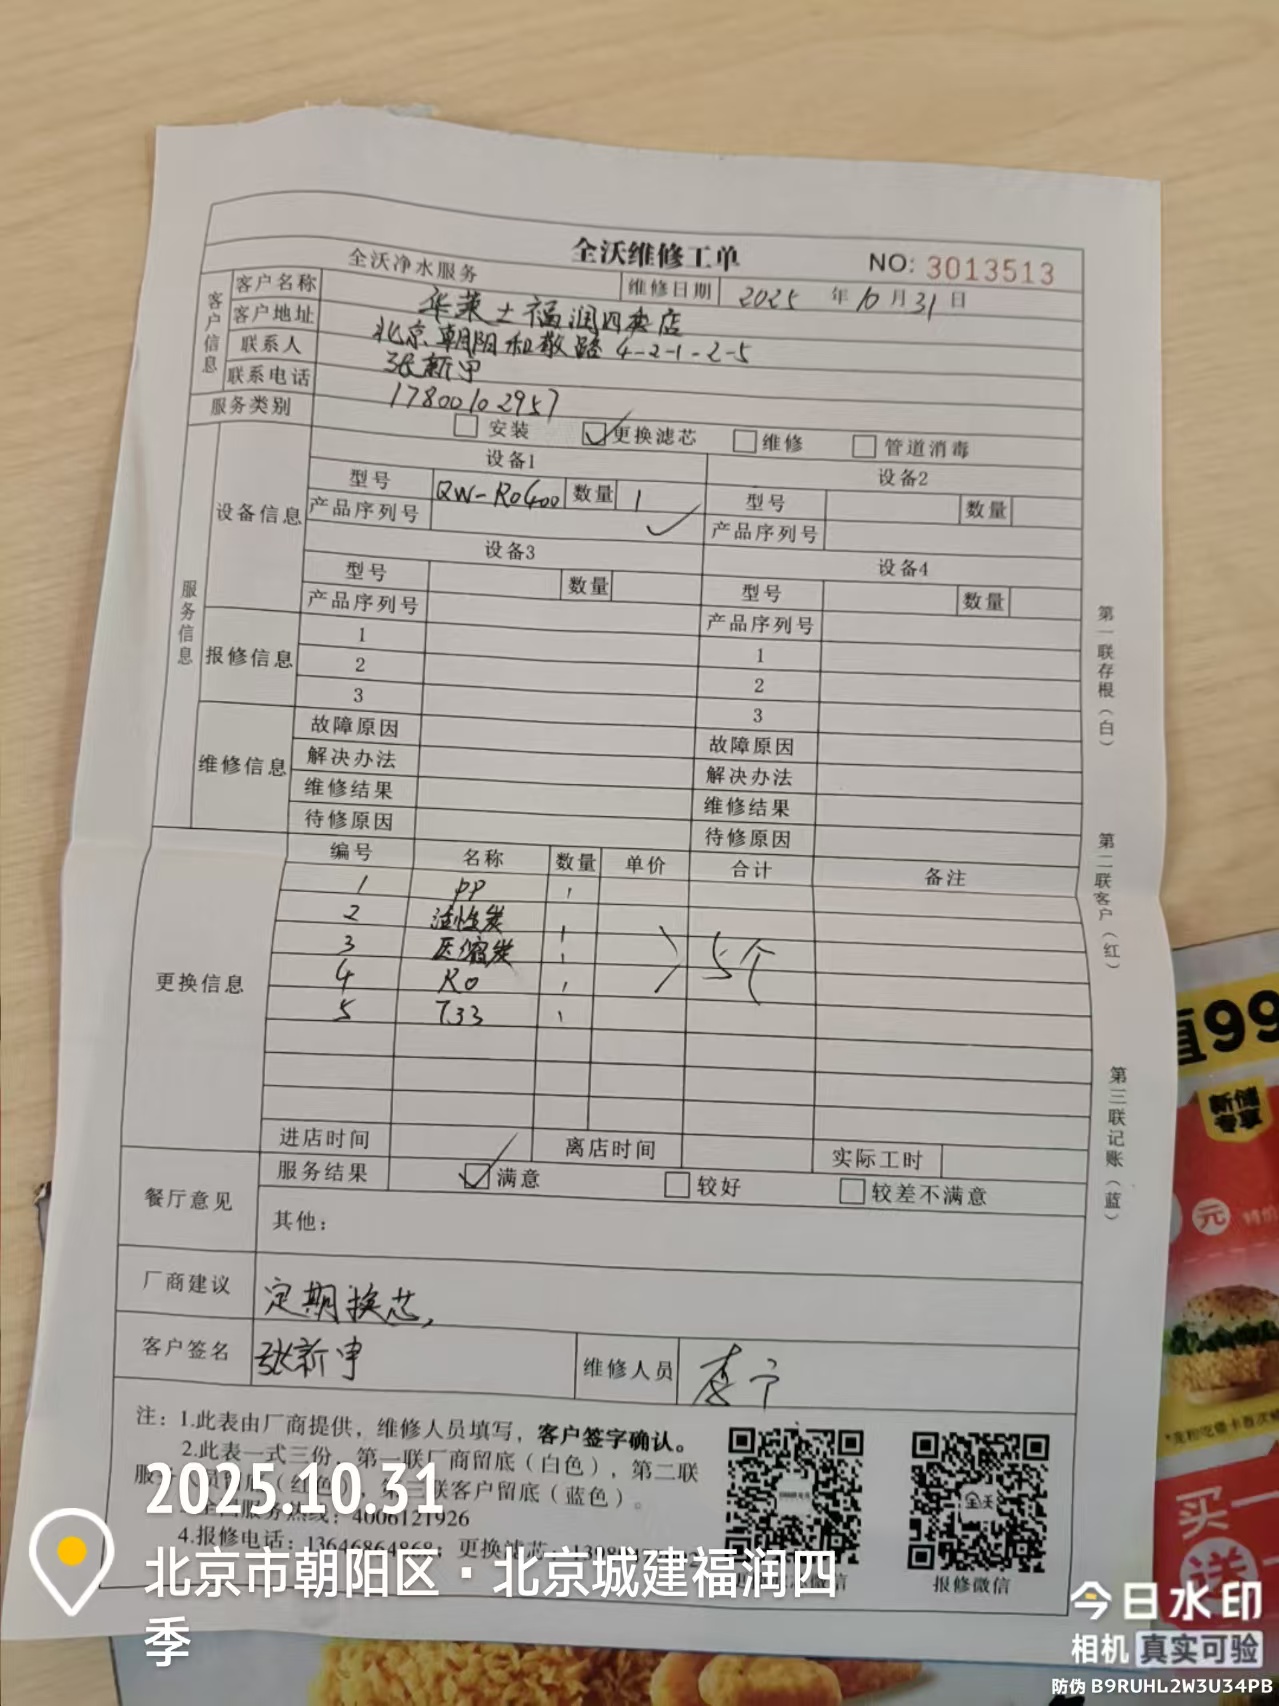 全沃维修工单
NO: 3013513
全沃净水服务
维修日期 2025 年 10 月 31 日
客户信息
客户名称 华莱士福润四季店
客户地址 北京朝阳和敬路4-2-1-2-5
联系人 张新申
联系电话 17800102957
服务类别 安装 更换滤芯 维修 管道消毒
服务信息
设备信息
设备1 设备2
型号 QW-RO400 数量 1 型号 数量
产品序列号 产品序列号
设备3 设备4
型号 数量 型号 数量
产品序列号 产品序列号
报修信息
1 1
2 2
3 3
维修信息
故障原因 故障原因
解决办法 解决办法
维修结果 维修结果
待修原因 待修原因
更换信息
编号 名称 数量 单价 合计 备注
1 PP 1
2 活性炭 1
3 压缩炭 1 5个
4 RO 1
5 T33 1
进店时间 离店时间 实际工时
餐厅意见
服务结果 满意 较好 较差不满意
其他：
厂商建议 定期换芯，
客户签名 张新申 维修人员 李宁
注：1.此表由厂商提供，维修人员填写，客户签字确认。
2.此表一式三份，第一联厂商留底（白色），第二联
服务人员留底（红色），第三联客户留底（蓝色）。
全国服务热线：4006121926
4.报修电话：13646864868；更换滤芯：
报修微信
全沃
第一联存根（白）
第二联客户（红）
第三联记账（蓝）
2025.10.31
北京市朝阳区·北京城建福润四
季
今日水印
相机 真实可验
防伪 B9RUHL2W3U34PB
值99
新储
专享
元
特价
买一
送